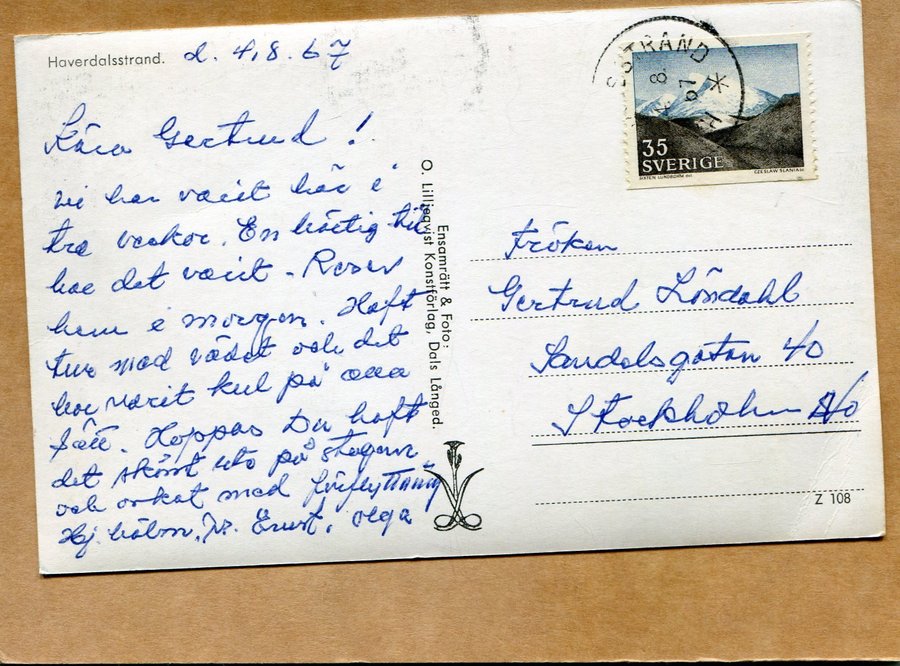 Haverdalsstrand. d. 4.8.67
Kära Gertrud!
vi har varit här i
tre veckor. En härlig tid
har det varit. Reser
hem i morgon. Haft
tur med vädet och det
har varit kul på alla
sätt. Hoppas Du haft
det skönt ute på stugan
och orkat med förflyttning
Hj. häln. Ernst, Olga
Ensamrätt & Foto:
O. Lilljeqvist Konstförlag, Dals Långed.
STRAND
8.
67
35
SVERIGE
CZESLAW SLANIA SC
Fröken
Gertrud Löndahl
Sandelsgatan 40
Stockholm NO
Z 108